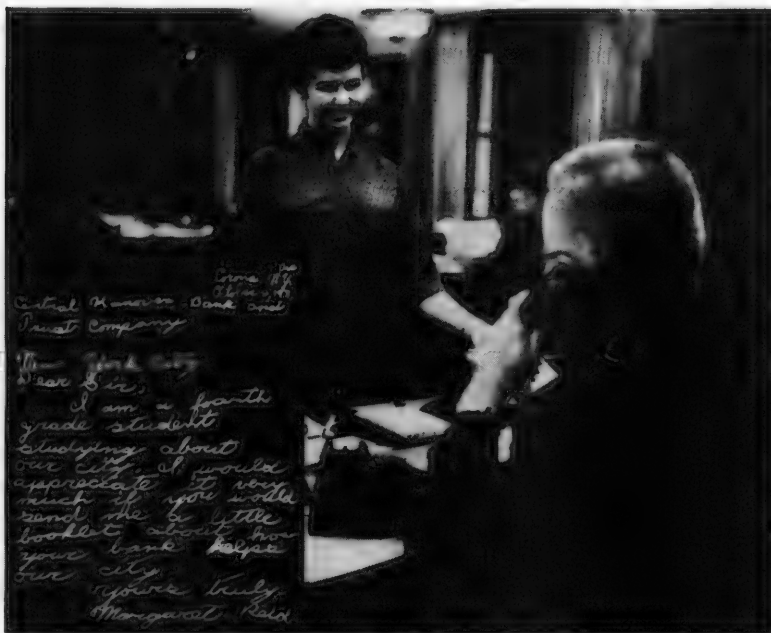 Central Hanover Bank and
Trust Company
New York City
Dear Sir,
I am a fourth
grade student
studying about
our city. I would
appreciate it very
much if you would
send me a little
booklet about how
your bank helps
our city.
Yours truly,
Margaret Reid